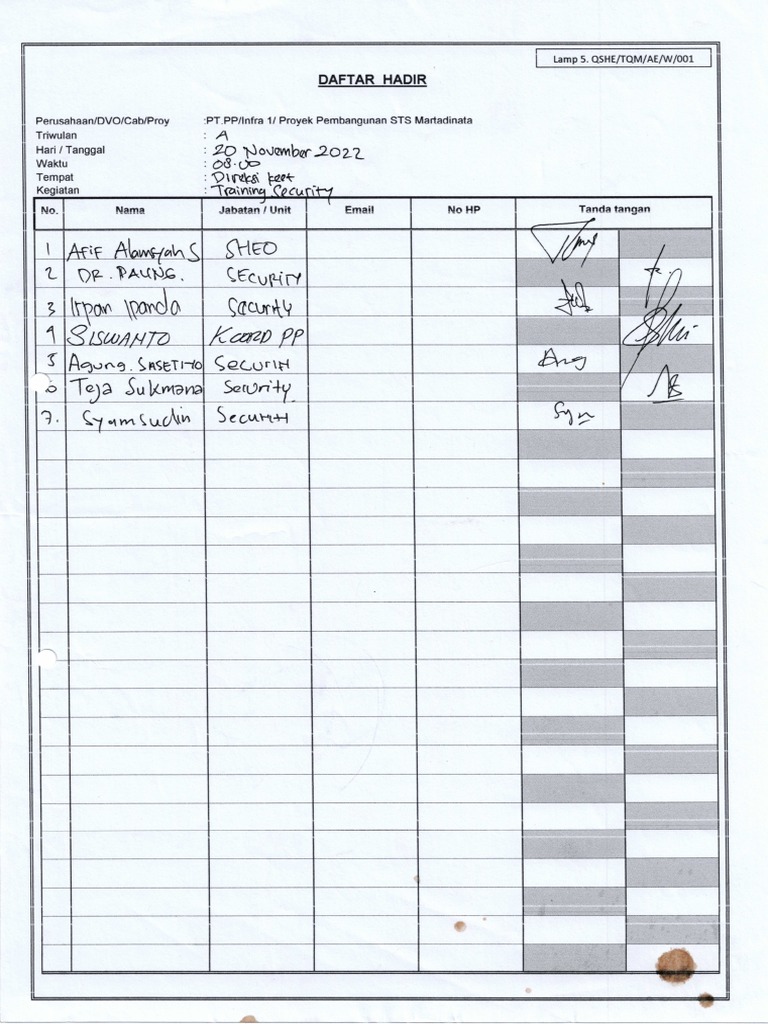 Lamp 5. QSHE/TQM/AE/W/001
DAFTAR HADIR
Perusahaan/DVO/Cab/Proy :PT.PP/Infra 1/ Proyek Pembangunan STS Martadinata
Triwulan : A
Hari / Tanggal : 20 November 2022
Waktu : 08.00
Tempat : Direksi keet
Kegiatan : Training Security
No. Nama Jabatan / Unit Email No HP Tanda tangan
1 Afif Alamsyah S SHEO
2 DR. PAUNG. SECURITY
3 Irpan Ipanda Security
4 SISWANTO KOORD PP
5 Agung. SASETIYO SECURITI Ang
6 Teja Sukmana Security.
7. Syamsudin Securiti Syn